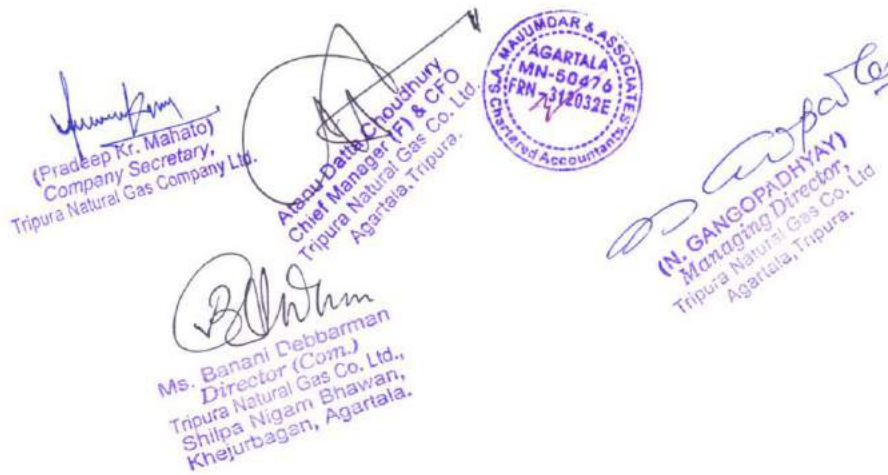 (Pradeep Kr. Mahato)
Company Secretary,
Tripura Natural Gas Company Ltd.
Atanu Datta Choudhury
Chief Manager (F) & CFO
Tripura Natural Gas Co. Ltd.
Agartala, Tripura.
S.A. MAJUMDAR & ASSOCIATES
AGARTALA
MN-50476
FRN-312032E
Chartered Accountants
(N. GANGOPADHYAY)
Managing Director,
Tripura Natural Gas Co. Ltd
Agartala, Tripura.
Ms. Banani Debbarman
Director (Com.)
Tripura Natural Gas Co. Ltd.,
Shilpa Nigam Bhawan,
Khejurbagan, Agartala.